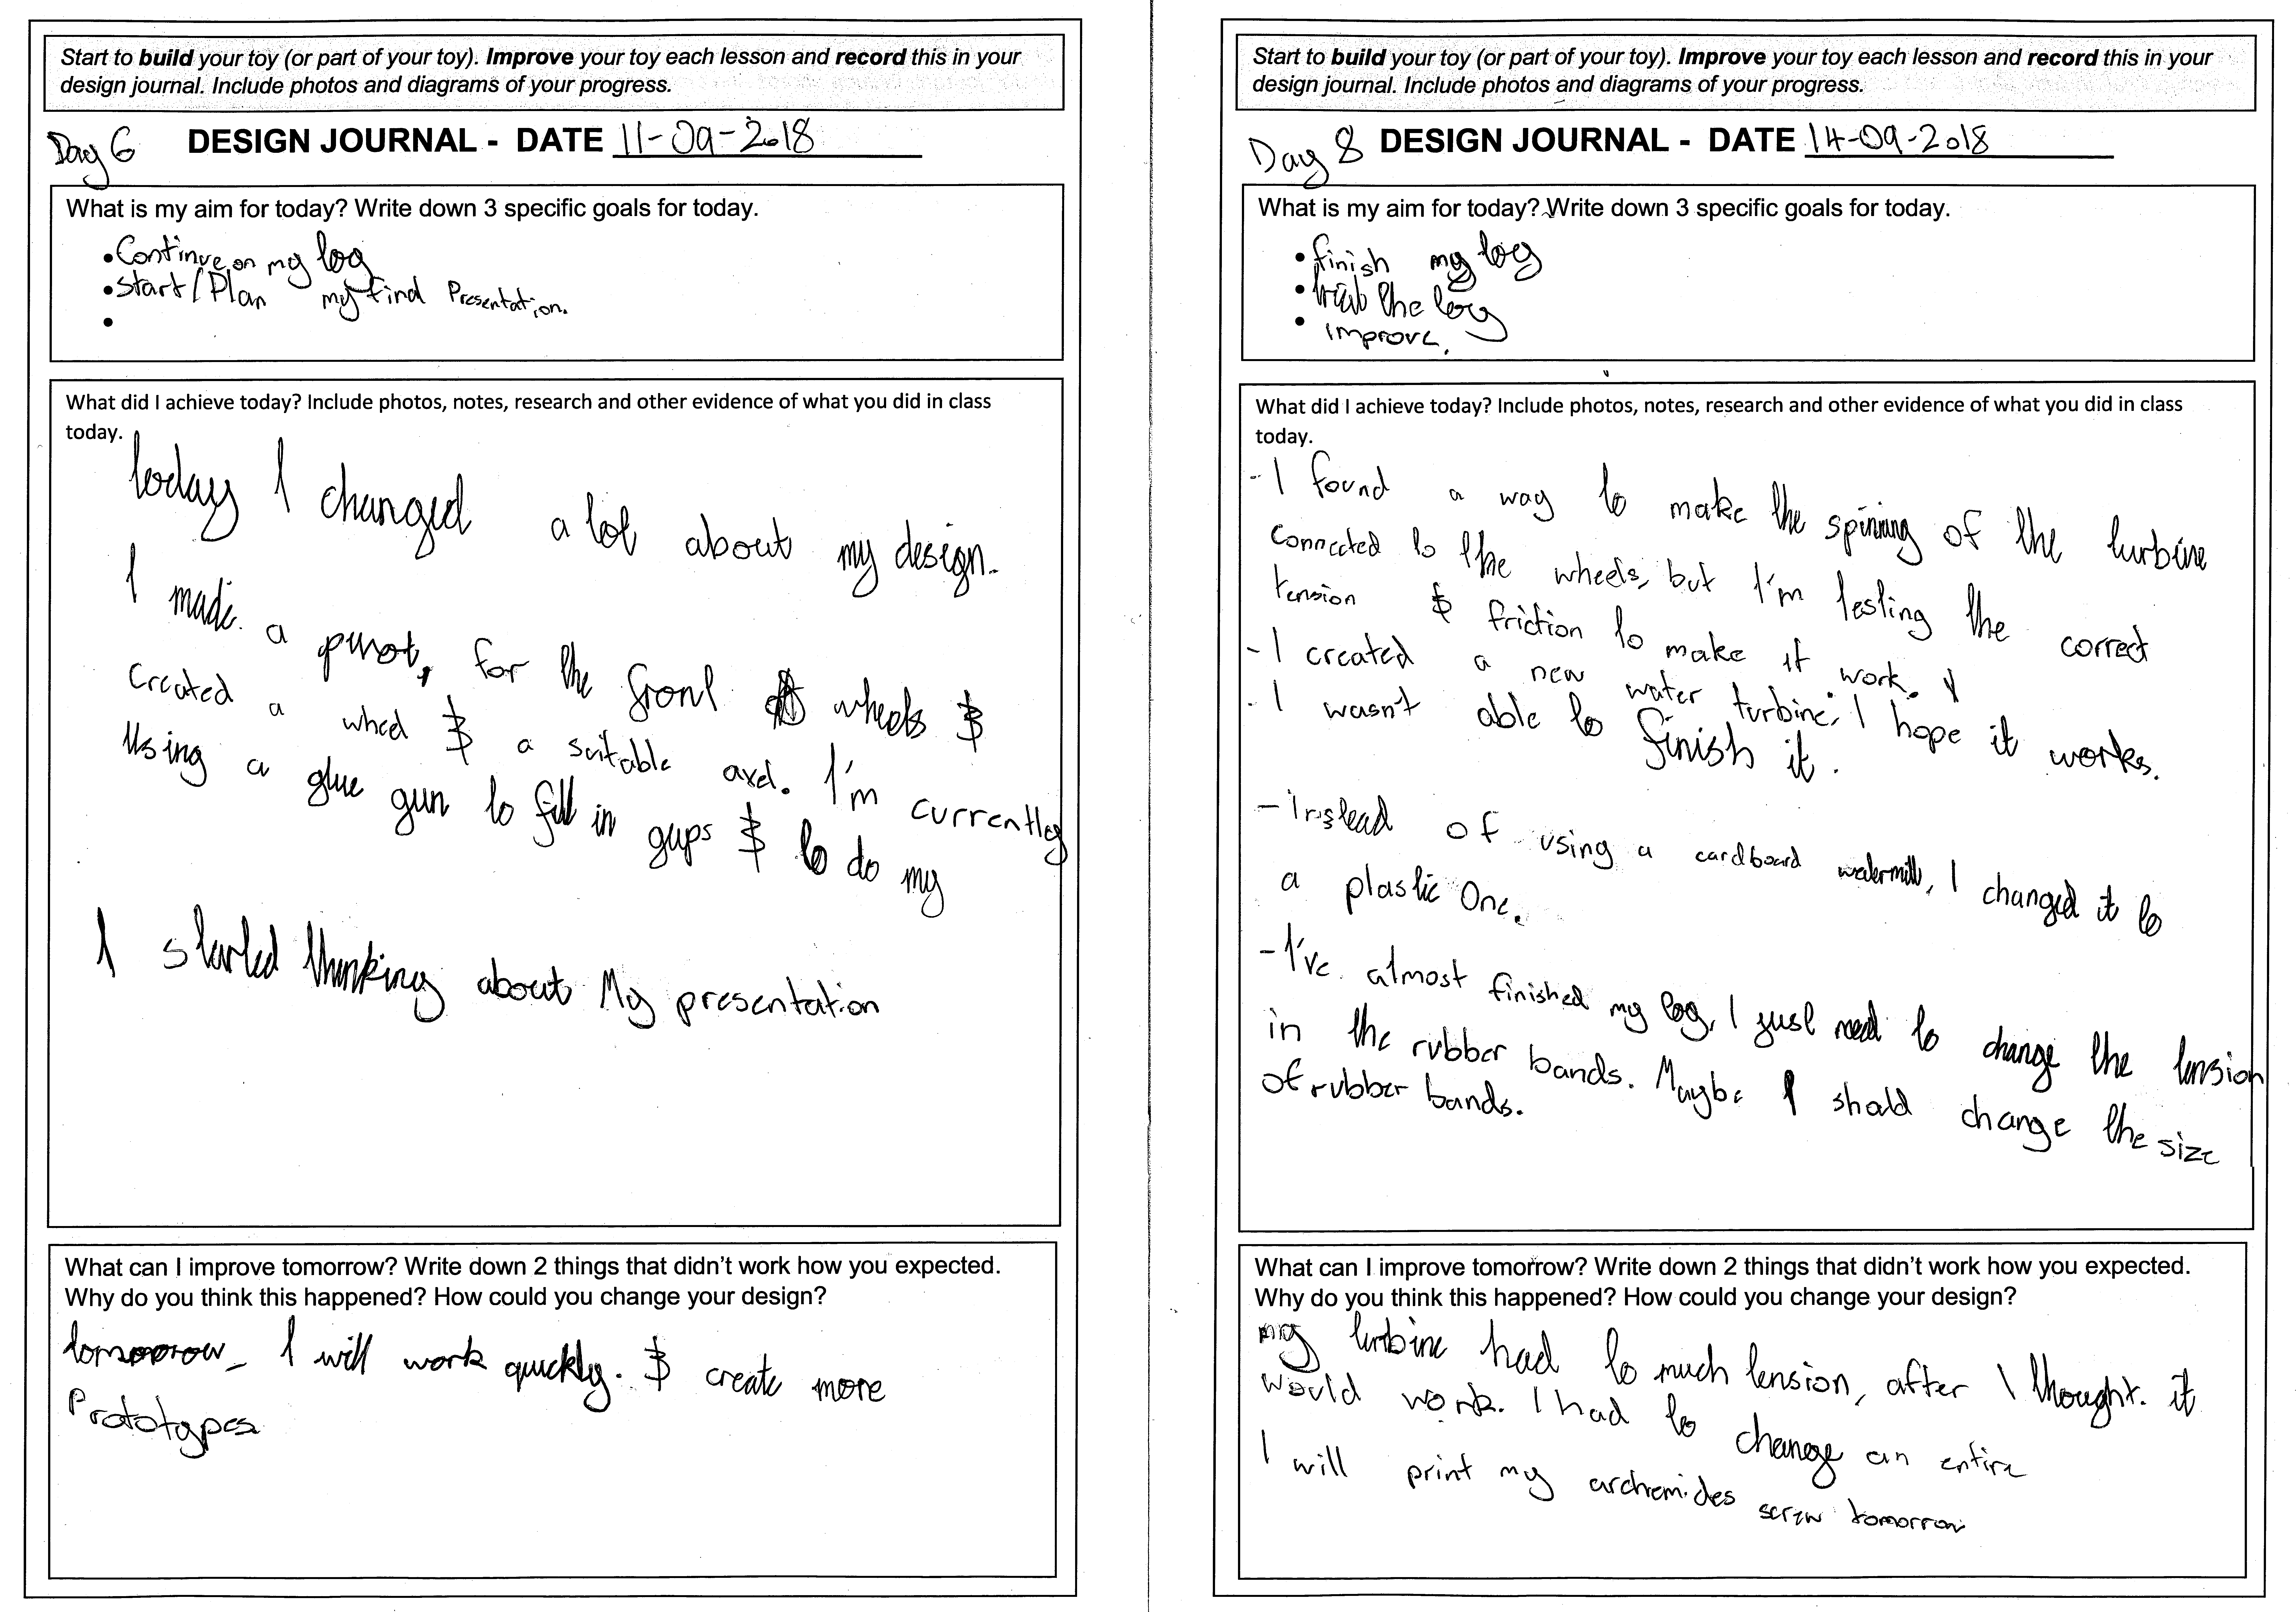 Start to build your toy (or part of your toy). Improve your toy each lesson and record this in your
design journal. Include photos and diagrams of your progress.
Day 6 DESIGN JOURNAL - DATE 11-09-2018
What is my aim for today? Write down 3 specific goals for today.
• Continue on my log
• Start/Plan my final Presentation.
•
What did I achieve today? Include photos, notes, research and other evidence of what you did in class
today.
today I changed a lot about my design.
I made a pivot, for the front wheels &
created a wheel & a suitable axel. I'm currently
Using a glue gun to fill in gaps & to do my
I started thinking about My presentation
What can I improve tomorrow? Write down 2 things that didn't work how you expected.
Why do you think this happened? How could you change your design?
tomorrow I will work quickly. & create more
Prototypes
Start to build your toy (or part of your toy). Improve your toy each lesson and record this in your
design journal. Include photos and diagrams of your progress.
Day 8 DESIGN JOURNAL - DATE 14-09-2018
What is my aim for today? Write down 3 specific goals for today.
• finish my log
• the log
• improve.
What did I achieve today? Include photos, notes, research and other evidence of what you did in class
today.
- I found a way to make the spinning of the turbine
connected to the wheels, but I'm testing the correct
tension & friction to make it work.
- I created a new water turbine, I hope it works.
- I wasn't able to finish it.
- Instead of using a cardboard watermill, I changed it to
a plastic One.
- I've almost finished my log, I just need to change the tension
in the rubber bands. Maybe I should change the size
of rubber bands.
What can I improve tomorrow? Write down 2 things that didn't work how you expected.
Why do you think this happened? How could you change your design?
my turbine had to much tension, after I thought. it
would work. I had to change an entire
I will print my archemides screw tomorrow